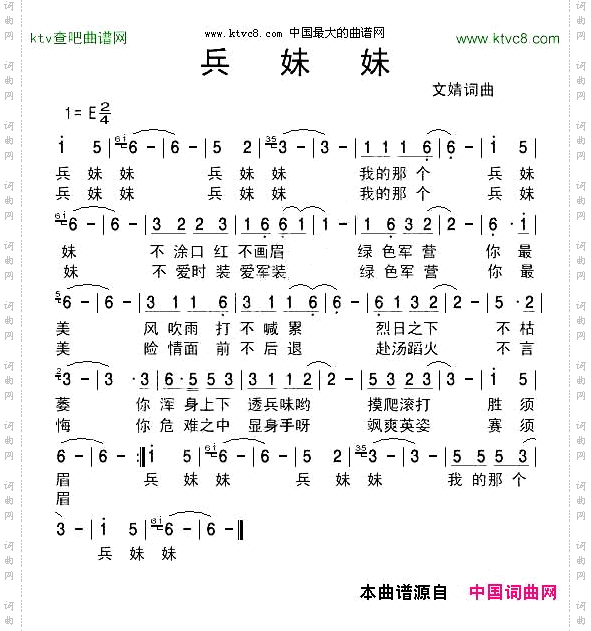 www.ktvc8.com 中国最大的曲谱网
ktv查吧曲谱网
www.ktvc8.com
兵 妹 妹
文婧词曲
1=E 2/4
i 5 | 6 - | 6 - | 5 2 | 3 - | 3 - | 1 1 1 6 | 6 - | i 5 |
兵 妹 妹 兵 妹 妹 我的那 个 兵 妹
兵 妹 妹 兵 妹 妹 我的那 个 兵 妹
6 - | 6 - | 3 2 2 3 | 1 6 6 | 6 1 | 1 - | 1 6 3 2 | 2 - | 6 · 1 |
妹 不 涂口 红 不画眉 绿 色军 营 你 最
妹 不 爱时 装 爱军装 绿 色军 营 你 最
6 - | 6 - | 3 1 1 6 | 3 1 1 | 1 6 | 6 - | 6 1 3 2 | 2 - | 5 · 2 |
美 风 吹雨 打 不 喊 累 烈日之下 不 枯
美 险 情面 前 不 后 退 赴汤蹈火 不 言
3 - | 3 · 3 | 6 · 5 5 3 | 3 1 1 2 | 2 - | 5 3 2 3 | 3 - | i 5 |
萎 你 浑 身上下 透兵味哟 摸爬滚打 胜 须
悔 你 危 难之中 显身手呀 飒爽英姿 赛 须
6 - | 6 - :| i 5 | 6 - | 6 - | 5 2 | 3 - | 3 - | 5 5 5 3 |
眉 兵 妹 妹 兵 妹 妹 我 的那 个
眉
3 - | i 5 | 6 - | 6 - ||
兵 妹 妹
本曲谱源自 中国词曲网